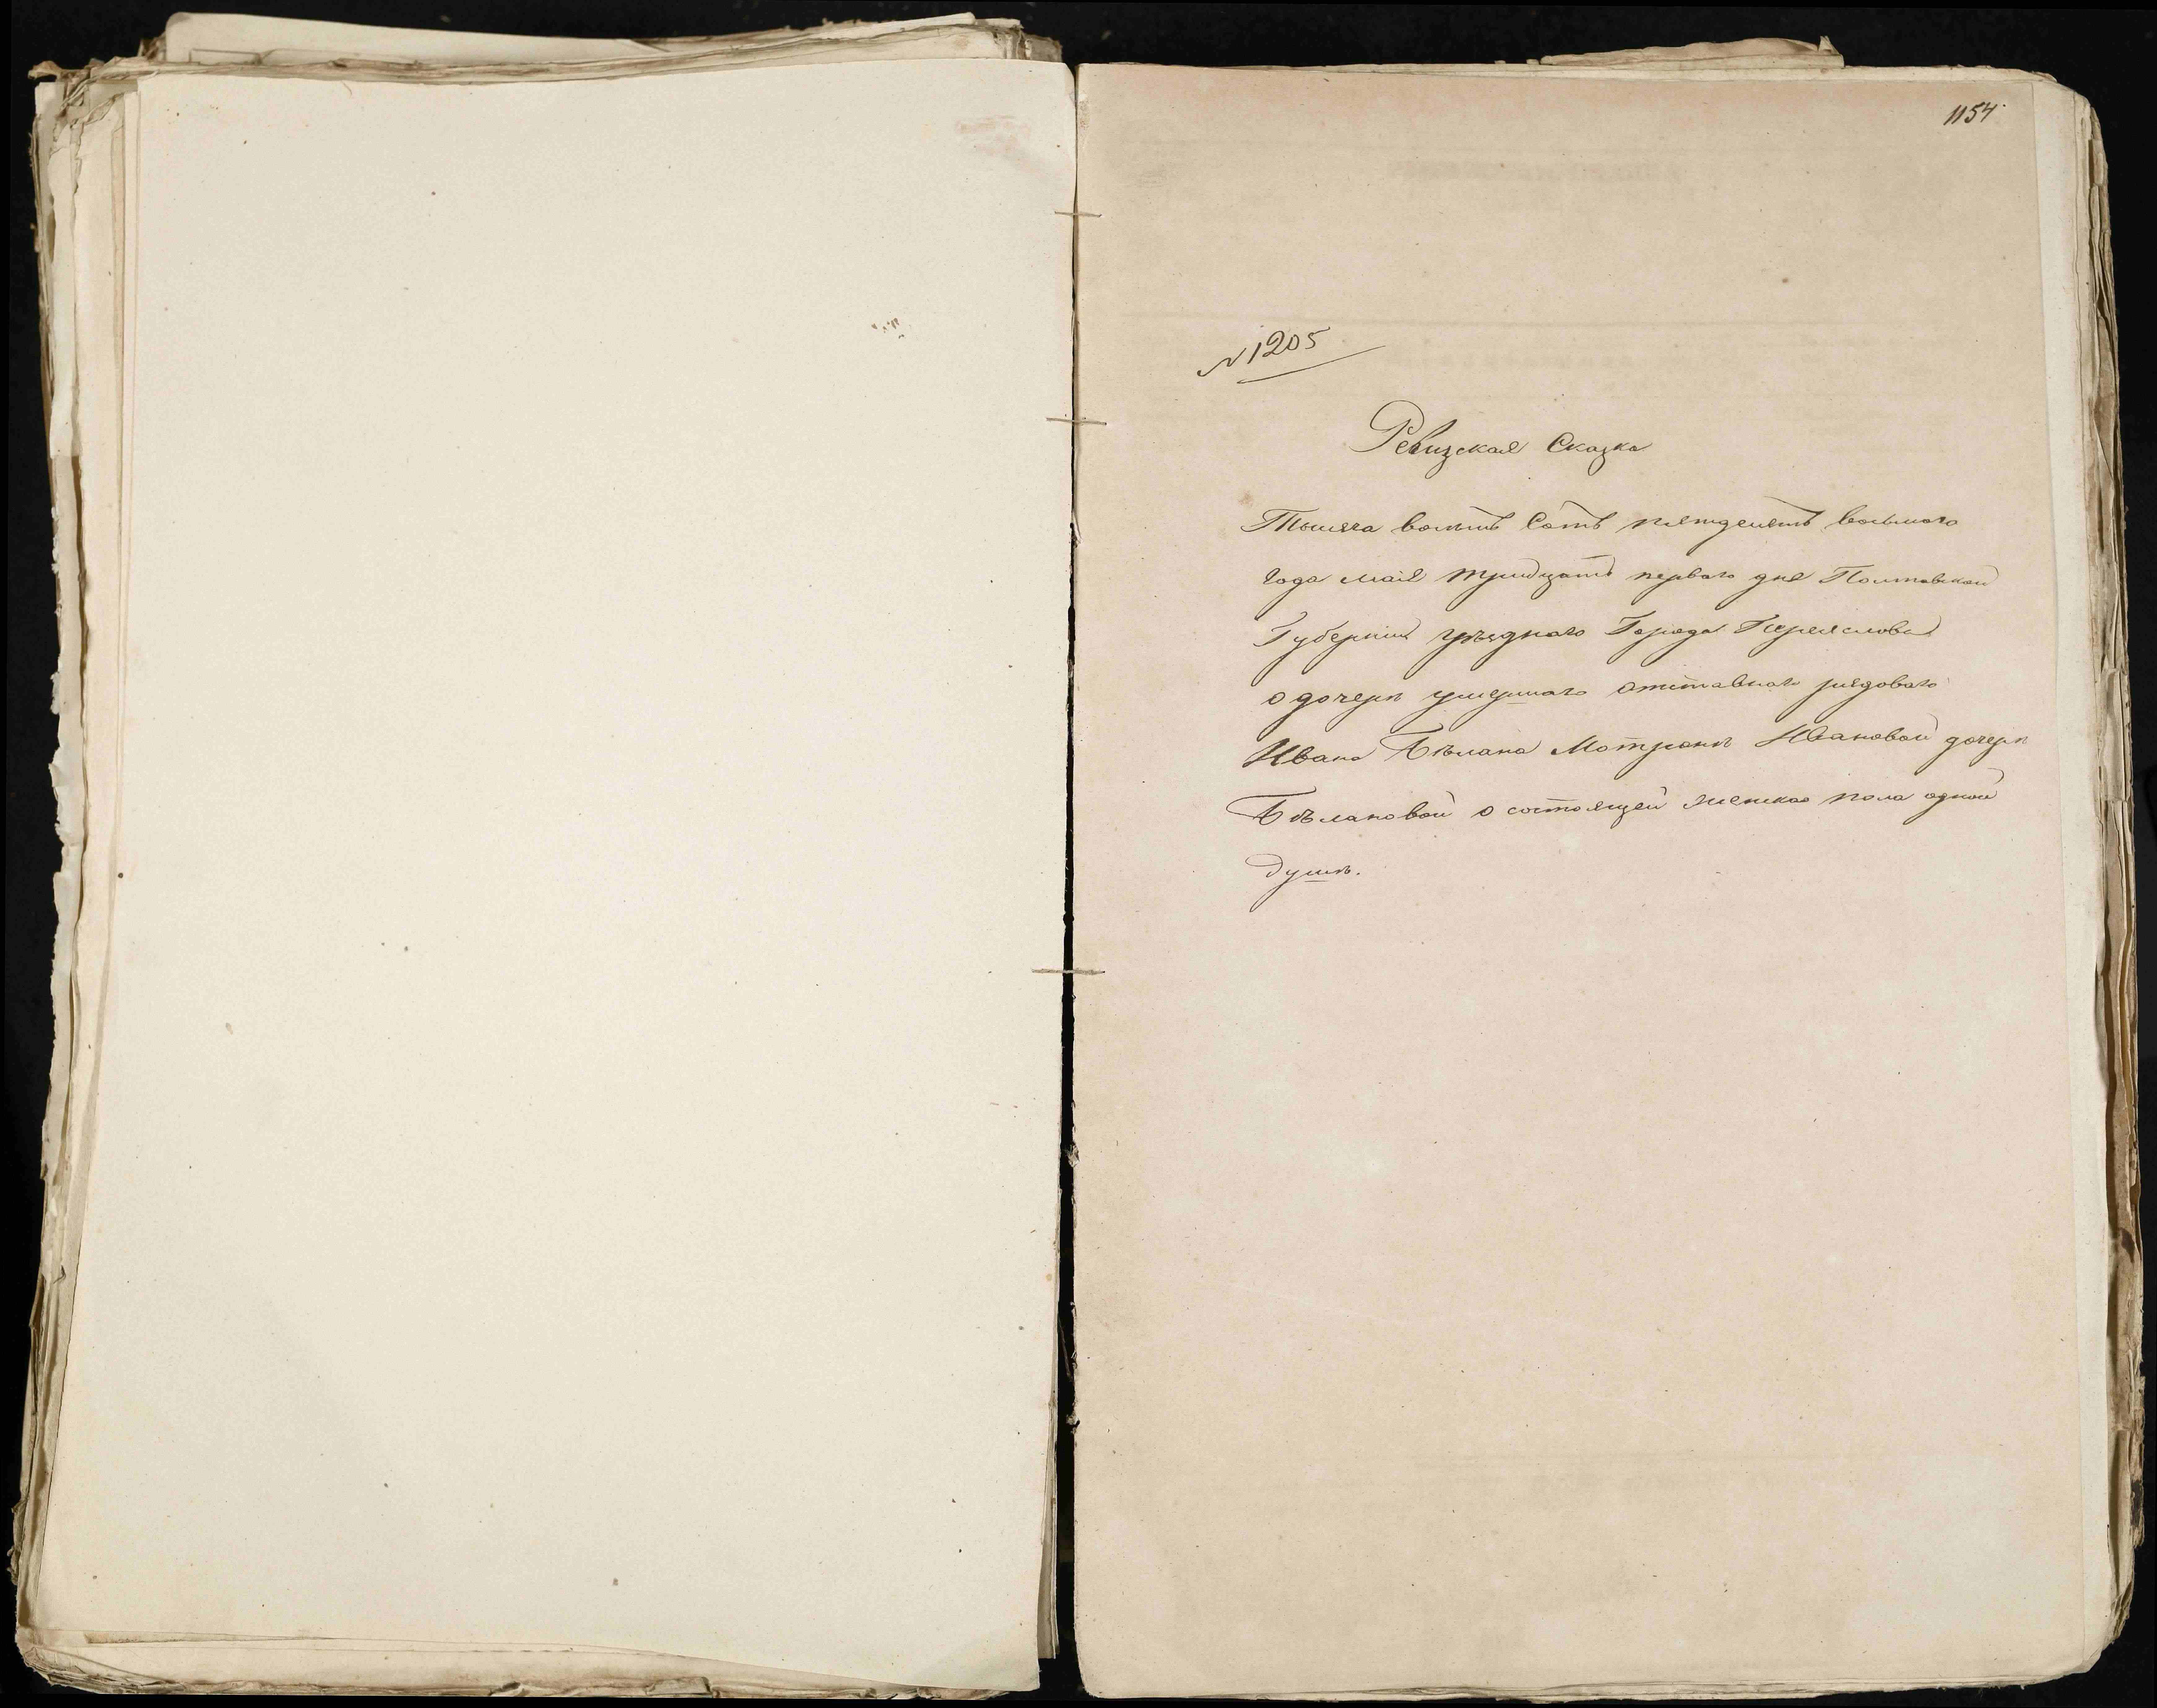 1154
№ 1205
Ревизская Сказка
Тысяча восемь Сотъ пятдесятъ восьмого
года маія тридцать перваго дня Полтавской
Губерніи уѣзднаго Города Переяслова
о дочерѣ умершаго отставнаго рядоваго
Ивана Бѣлана Мотронѣ Ивановой дочерѣ
Бѣлановой о состоящей женскаго пола одной
душѣ.